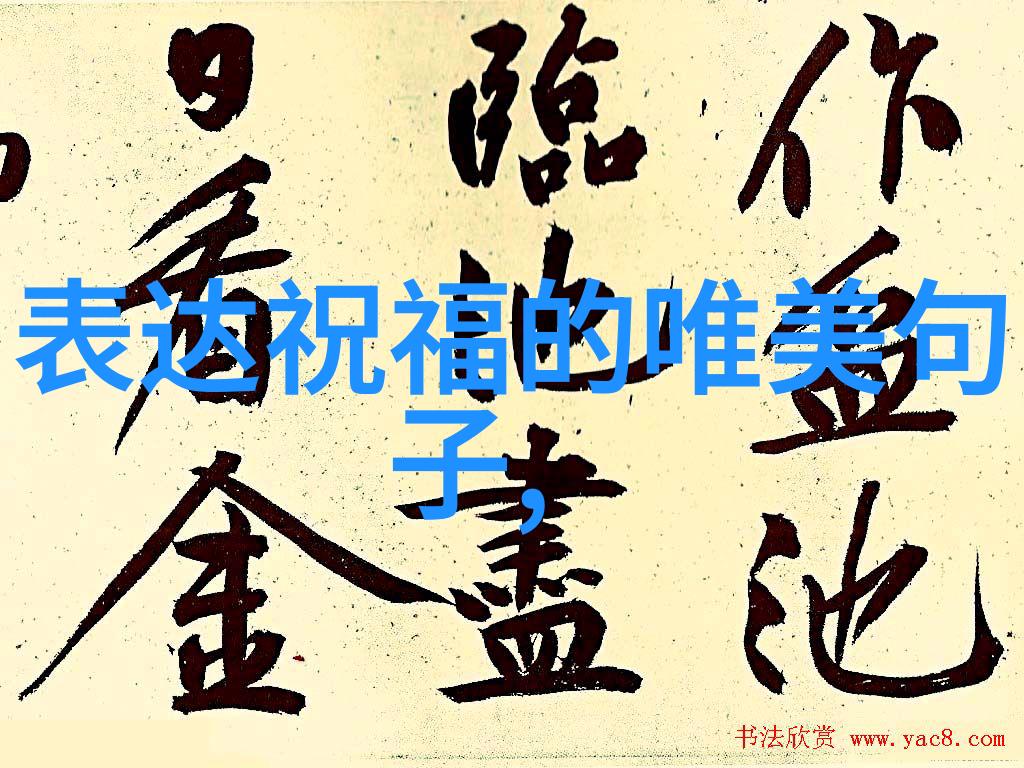 作血池
臨池盡
日看金
表达祝福的唯美句
子,
书法欣赏 www.yac8.com